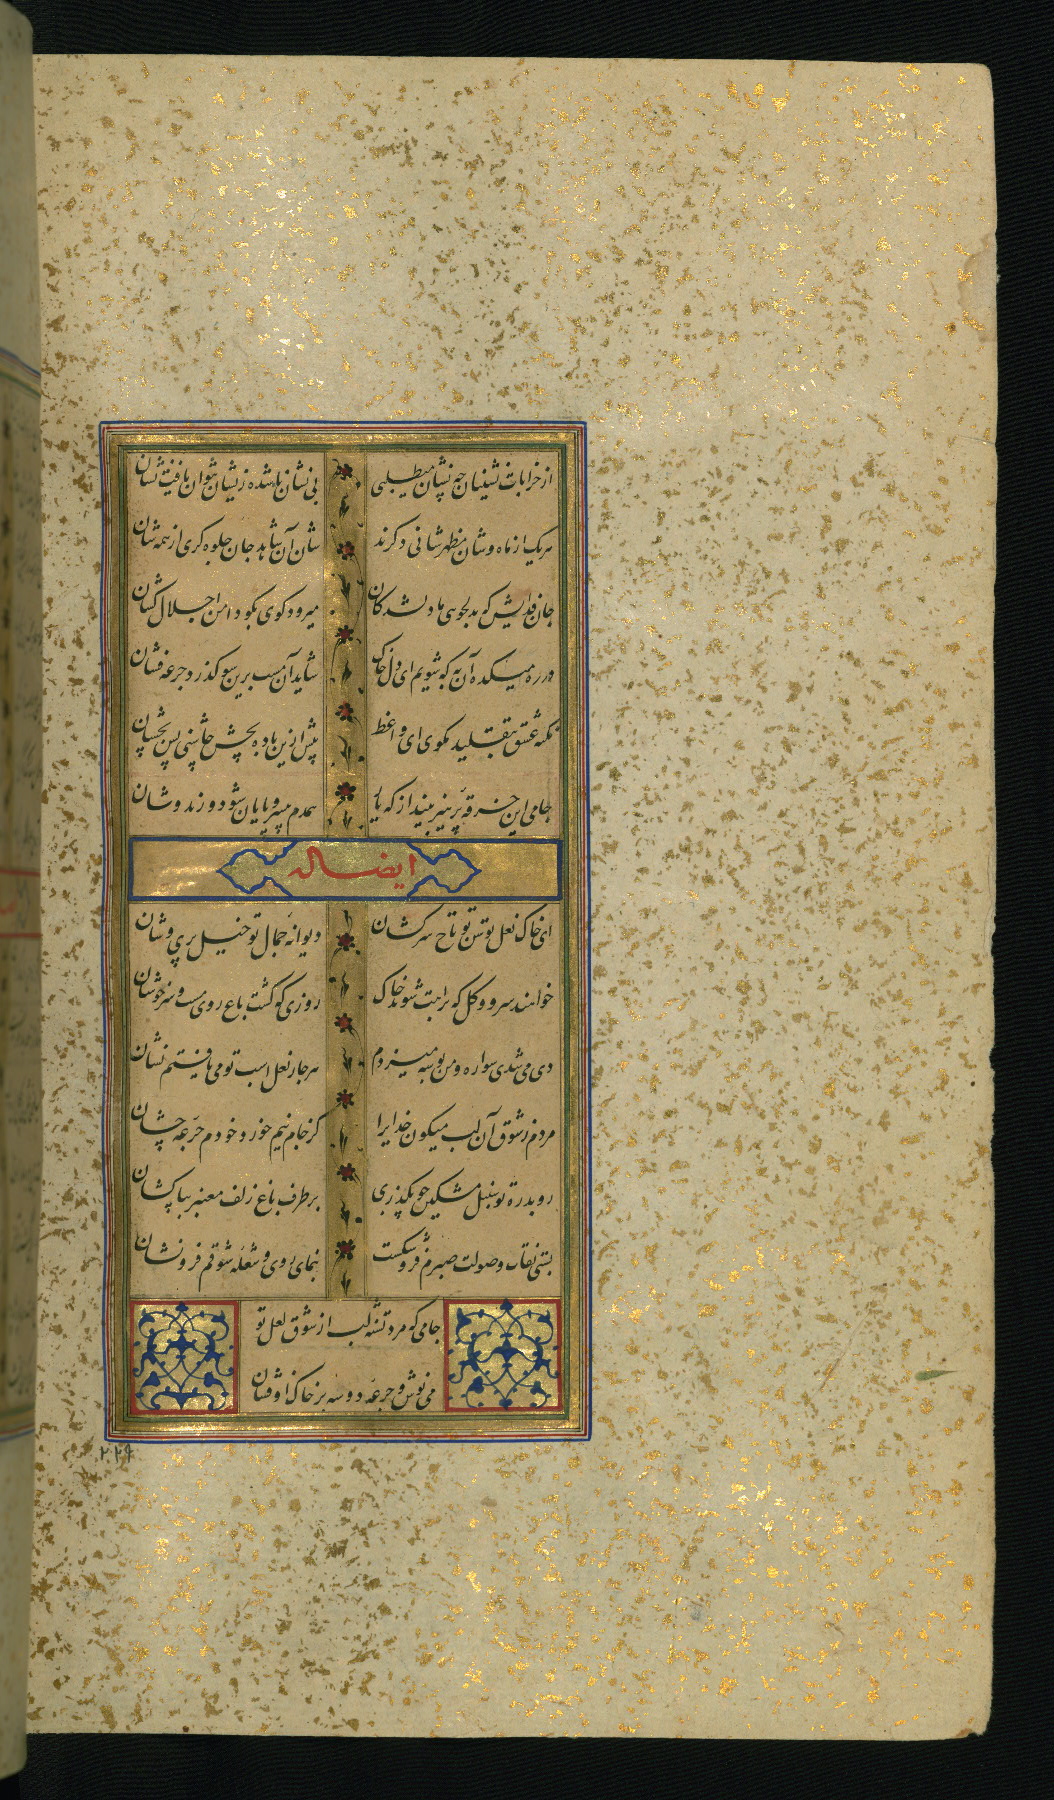 از خرابات نشینان چه نشان میطلبی بی نشان ناشده زیشان نتوان یافت نشان
هر یک از ماه وشان مظهر شانی دگرند شان آن شاهد جان جلوه گری از همه شان
جان فدایش که بدلجویی ما دلشدگان میرود کوی بکو دامن اجلال کشان
در ره میکده آن به که شویم ای دل خاک شاید آن مست برین سو گذرد جرعه فشان
نکته عشق بتقلید مگوی ای واعظ پیش ازین باده بچش چاشنی پس بچشان
جامی این خرقه پرهیز بینداز که یار همدم بی سر و پایان شود و رند وشان
ایضاله
ای خاک نعل توسن تو تاج سرکشان دیوانه جمال تو خیل پری وشان
خواهند سرو و گل که براهت شوند خاک روزی که گشت باغ روی مست و سرخوشان
دی می شدی سواره و من بوسه میزدم هر جا ز نعل اسب تو می یافتم نشان
مردم ز شوق آن لب میگون خدایرا کز جام نیم خورد خودم جرعه چشان
رو بد ره تو سنبل مشکین چو بگذری بر طرف باغ زلف معنبر بپا کشان
بستی نقاب و صولت صبرم فرو شکست بنمای روی و شعله شوقم فرو نشان
جامی که مرد تشنه لب از شوق لعل تو
می نوش و جرعه دو سه بر خاک او فشان